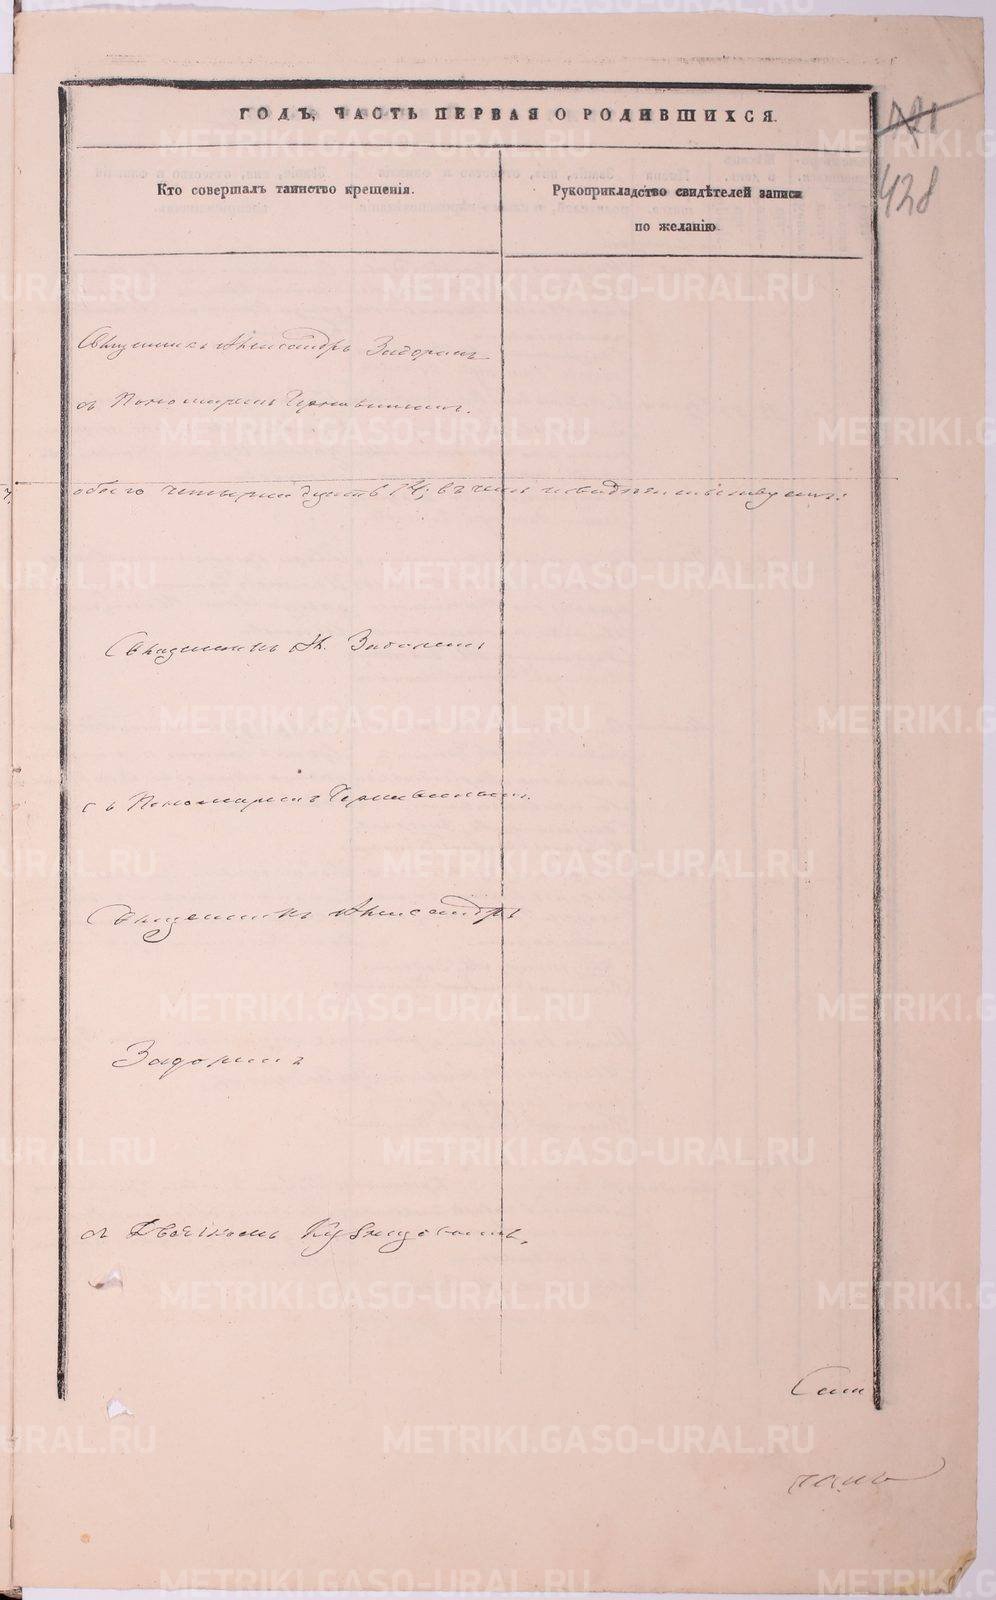 ГОДЪ, ЧАСТЬ ПЕРВАЯ О РОДИВШИХСЯ.
428
Кто совершалъ таинство крещенія.
Рукоприкладство свидѣтелей записи
по желанію.
Священникъ Александръ Задоринъ
съ Пономаремъ
обоего четырнадцать 14; въ чемъ и свидѣтельствуемъ:
Священникъ Ал. Задоринъ
съ Пономаремъ
Священникъ Александръ
Задоринъ
съ Дьячкомъ Кузнецовымъ.
METRIKI.GASO-URAL.RU